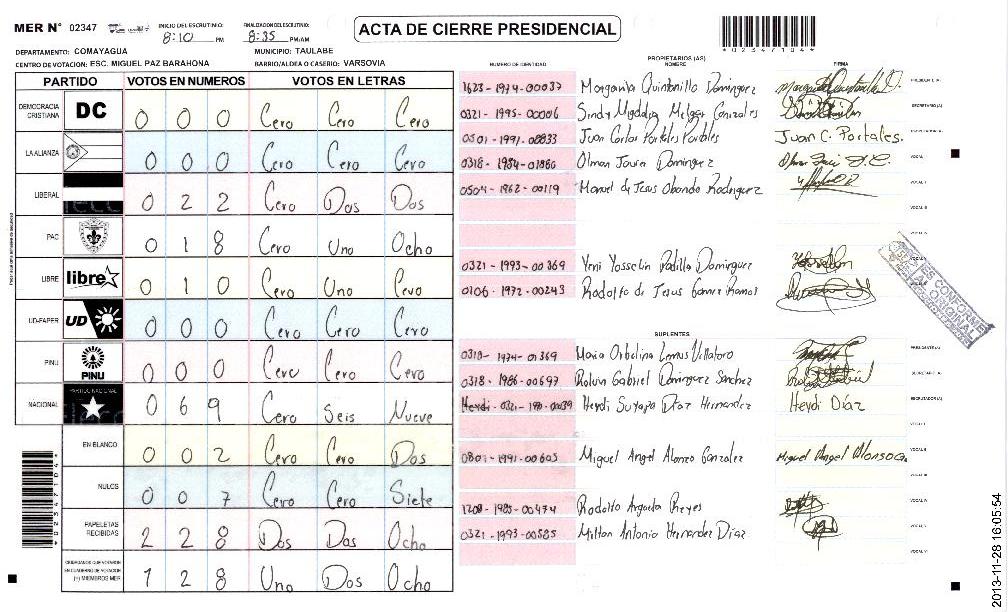 MER N° 02347
INICIO DEL ESCRUTINIO: 8:10 PM
FINALIZACION DEL ESCRUTINIO: 8:35 PM/AM
ACTA DE CIERRE PRESIDENCIAL
DEPARTAMENTO: COMAYAGUA
MUNICIPIO: TAULABE
CENTRO DE VOTACION: ESC. MIGUEL PAZ BARAHONA
BARRIO/ALDEA O CASERIO: VARSOVIA
PARTIDO VOTOS EN NUMEROS VOTOS EN LETRAS
DEMOCRACIA CRISTIANA DC 0 0 0 Cero Cero Cero
LA ALIANZA 0 0 0 Cero Cero Cero
LIBERAL 0 2 2 Cero Dos Dos
PAC 0 1 8 Cero Uno Ocho
LIBRE libre 0 1 0 Cero Uno Cero
UD-FAPER UD 0 0 0 Cero Cero Cero
PINU PINU 0 0 0 Cero Cero Cero
NACIONAL PARTIDO NACIONAL 0 6 9 Cero Seis Nueve
EN BLANCO 0 0 2 Cero Cero Dos
NULOS 0 0 7 Cero Cero Siete
PAPELETAS RECIBIDAS 2 2 8 Dos Dos Ocho
CIUDADANOS QUE VOTARON EN CUADERNO DE VOTACION (+) MIEMBROS MER 1 2 8 Uno Dos Ocho
NUMERO DE IDENTIDAD PROPIETARIOS (AS) NOMBRE FIRMA
1623-1974-00037 Margarita Quintanilla Dominguez PRESIDENTE (A)
0321-1995-00006 Sindy Migdalia Melgar Gonzales SECRETARIO (A)
0501-1991-08833 Juan Carlos Portales Portales Juan C. Portales.
0318-1984-01880 Olman Javier Dominguez VOCAL I
0504-1962-00119 Manuel de Jesus Obando Rodriguez
0321-1993-00369 Yeni Yosselin Padilla Dominguez
0106-1972-00243 Rodolfo de Jesus Gomez Ramos
SUPLENTES
0318-1974-01369 Maria Orbelina Lemus Villatoro PRESIDENTE (A)
0318-1986-00697 Rolvin Gabriel Dominguez Sanchez SECRETARIO (A)
Heydi Suyapa Diaz Hernandez Heydi Díaz ESCRUTADOR (A)
0801-1991-00605 Miguel Angel Alonzo Gonzalez Miguel Angel Alonso G.
1208-1985-00474 Rodolfo Argueta Reyes
0321-1993-00585 Milton Antonio Hernandez Díaz
ES CONFORME A ORIGINAL
2013-11-28 16:05:54